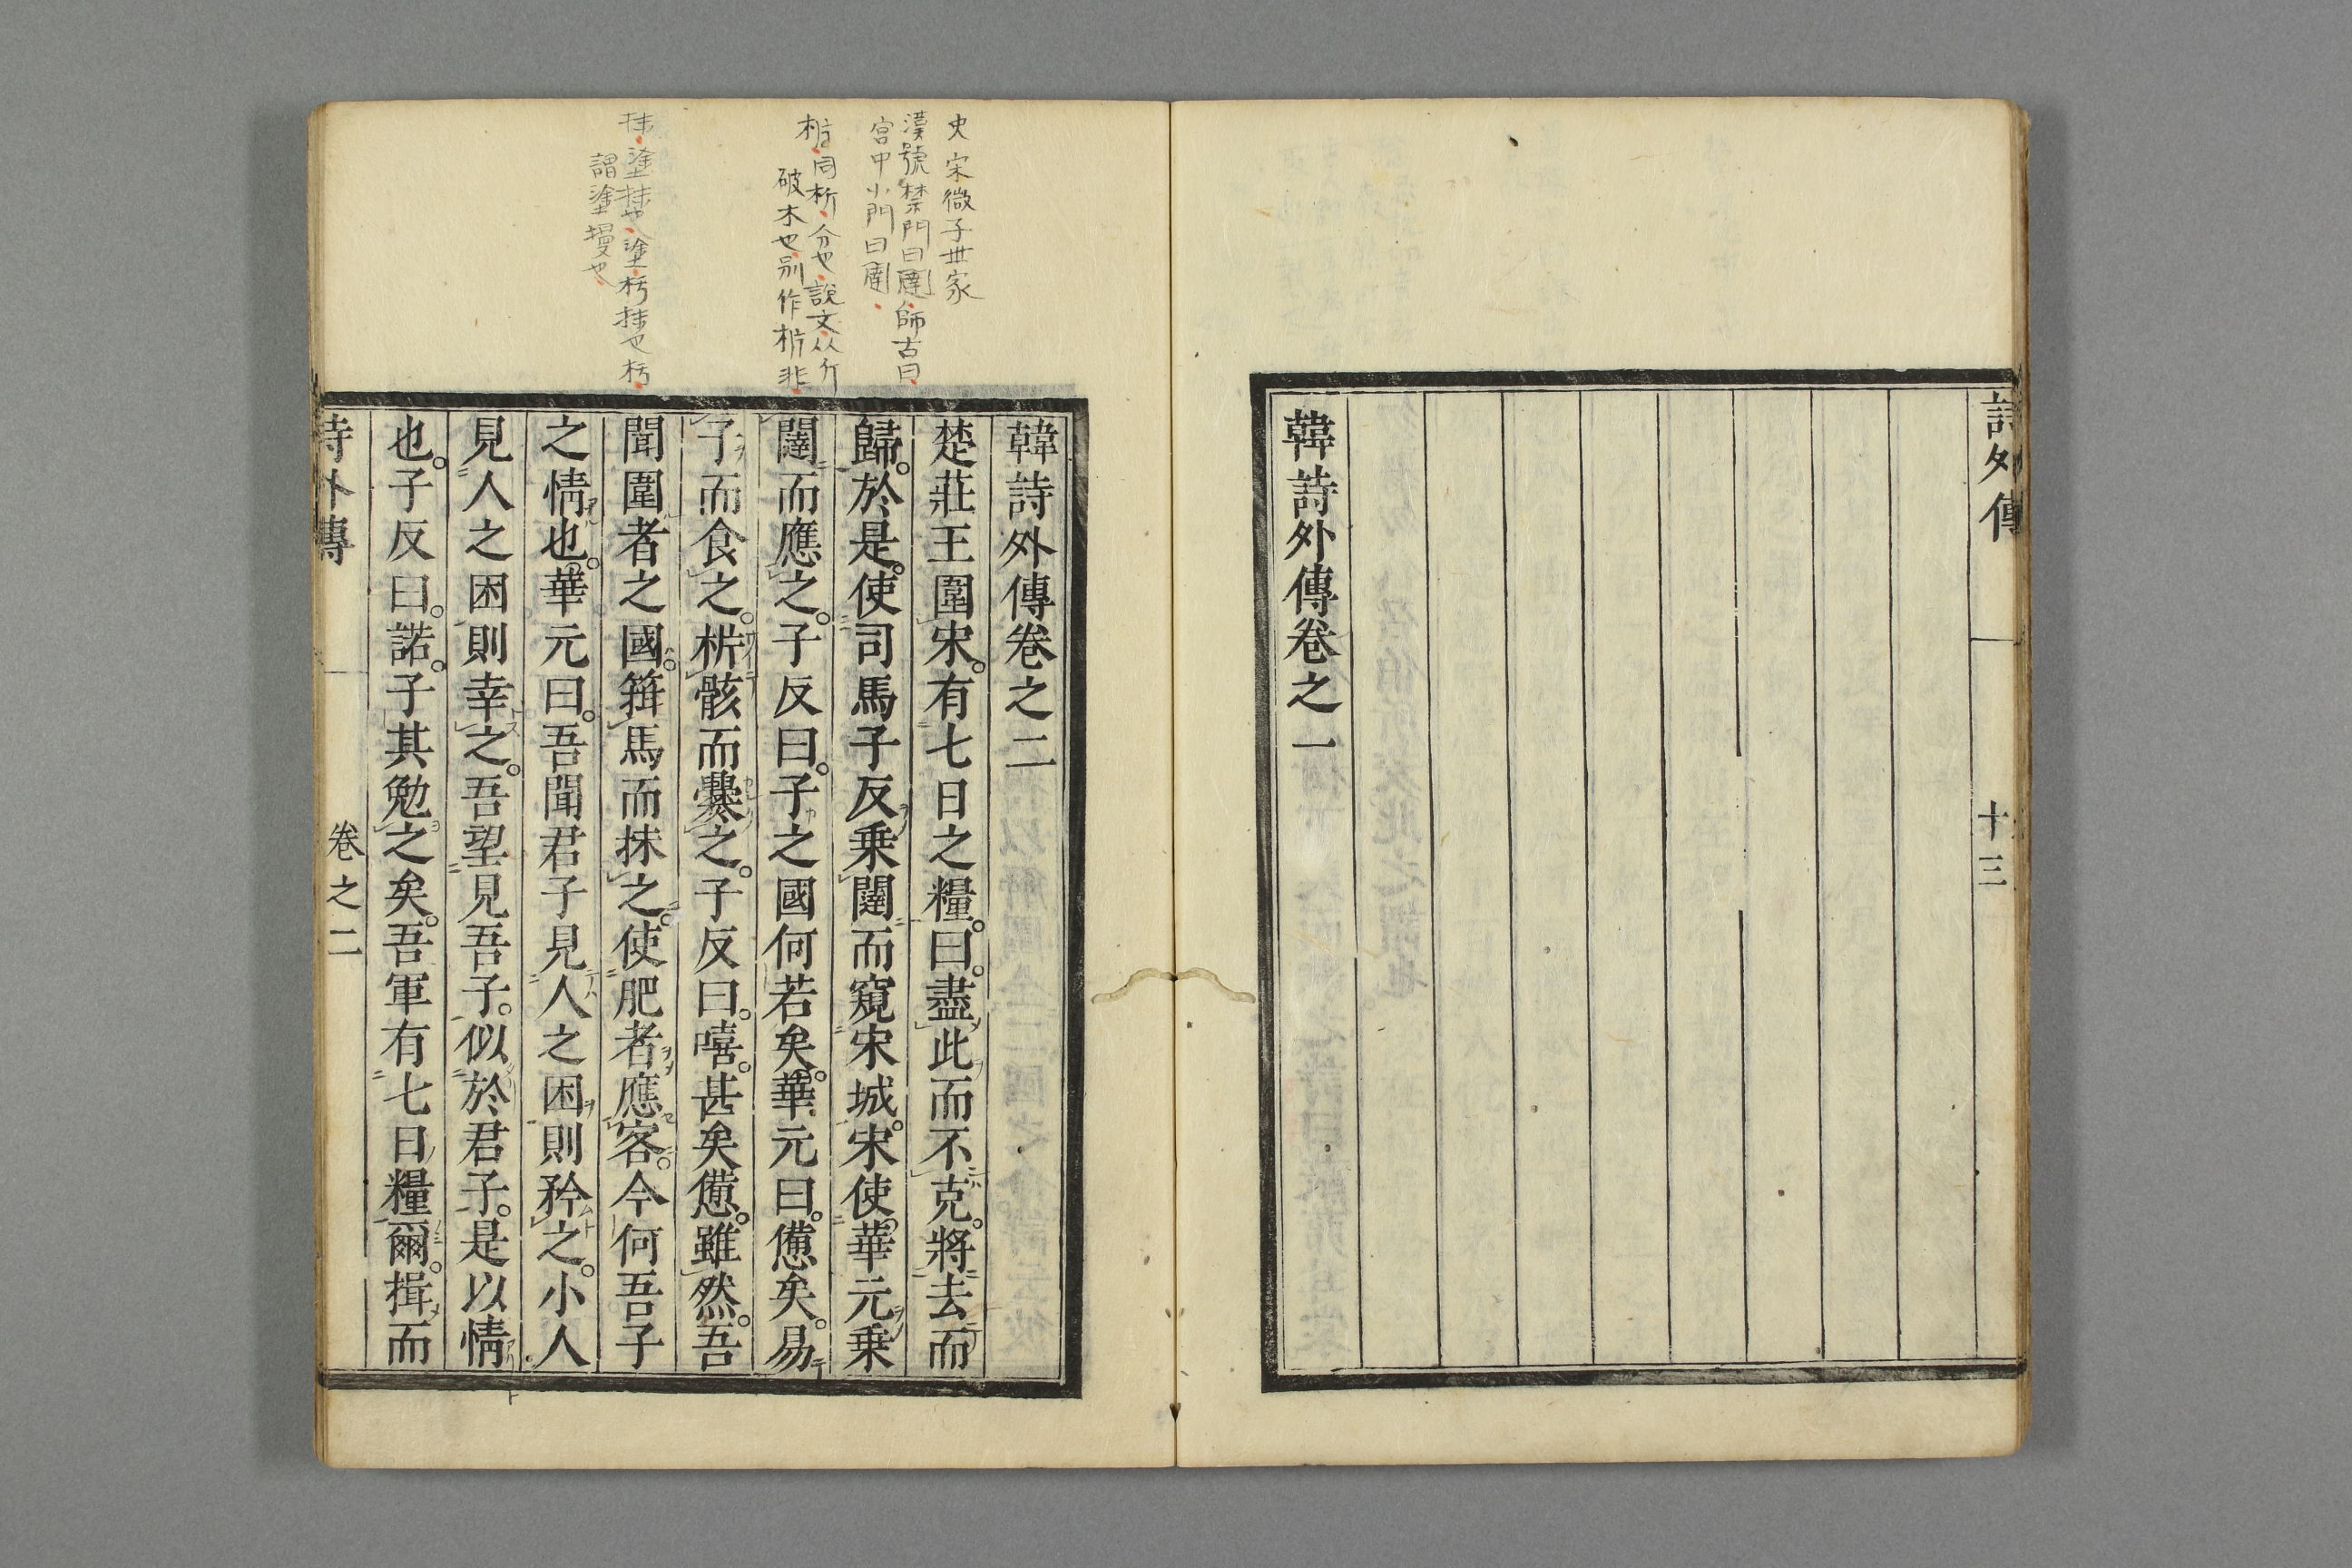 詩外傳
十三
韓詩外傳卷之一
史宋微子世家
漢號禁門曰闥師古曰
宮中小門曰闥
枿同析分也說文从斤
破木也別作枿非
抹塗抹也塗杇抹也杇
謂塗墁也
韓詩外傳卷之二
楚莊王圍宋。有七日之糧。曰。盡此而不克。將去而
歸。於是。使司馬子反乗闥而窺宋城。宋使華元乗
闥而應之。子反曰。子之國何若矣。華元曰。憊矣。易
子而食之。㭊骸而爨之。子反曰。嘻。甚矣憊。雖然。吾
聞圍者之國。箝馬而抹之。使肥者應客。今何吾子
之情也。華元曰。吾聞君子見人之困則矜之。小人
見人之困則幸之。吾望見吾子。似於君子。是以情
也。子反曰。諾。子其勉之矣。吾軍有七日糧爾。揖而
詩外傳
卷之二